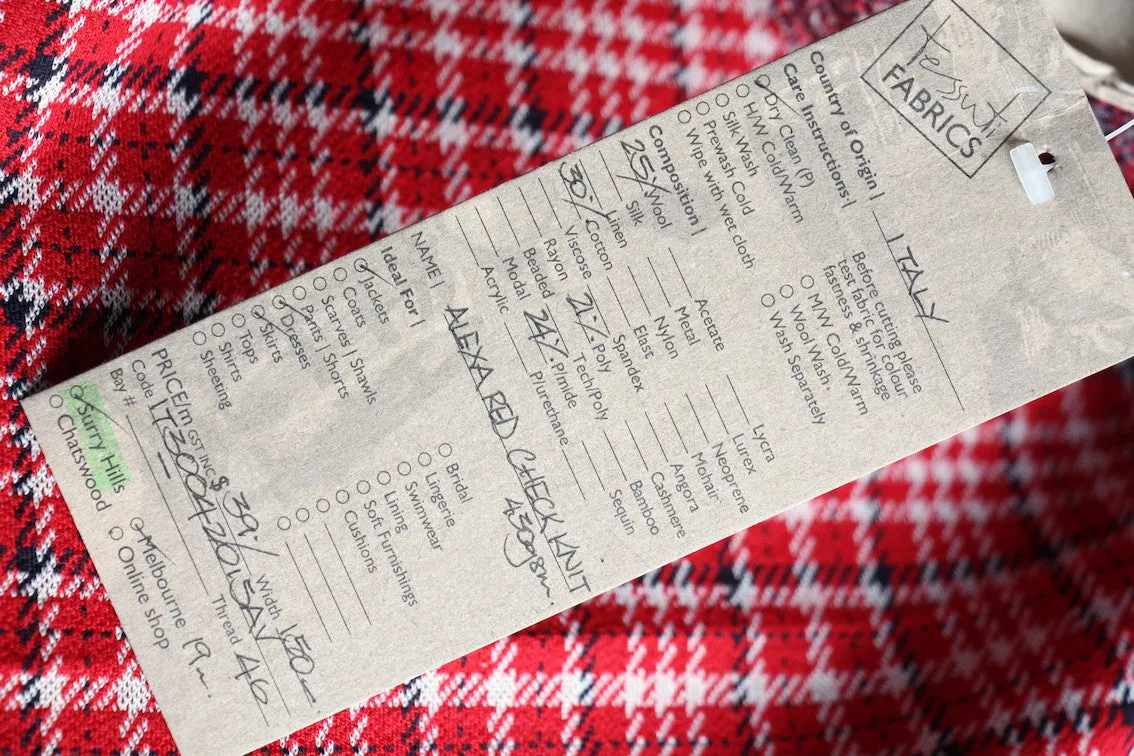 Tessuti
FABRICS
Country of Origin | ITALY
Care Instructions |
Dry Clean (P)
H/W Cold/Warm
Silk Wash
Prewash Cold
Wipe with wet cloth
Before cutting please
test fabric for colour
fastness & shrinkage
M/W Cold/Warm
Wool Wash
Wash Separately
Composition |
25% Wool
Silk
Linen
30% Cotton
Viscose
Rayon
Beaded
Modal
Acrylic
Acetate
Metal
Nylon
Elast
Spandex
21% Poly
Tech/Poly
24% P/mide
Plurethane
Lycra
Lurex
Neoprene
Mohair
Angora
Cashmere
Bamboo
Sequin
NAME | ALEXA RED CHECK KNIT
430gsm.
Ideal For |
Jackets
Coats
Scarves | Shawls
Pants | Shorts
Dresses
Skirts
Tops
Shirts
Sheeting
Bridal
Lingerie
Swimwear
Lining
Soft Furnishings
Cushions
PRICE/m GST INC $ 39.- Width 150
Code Thread 46
Bay # -
Surry Hills
Chatswood
Melbourne 19m.
Online shop